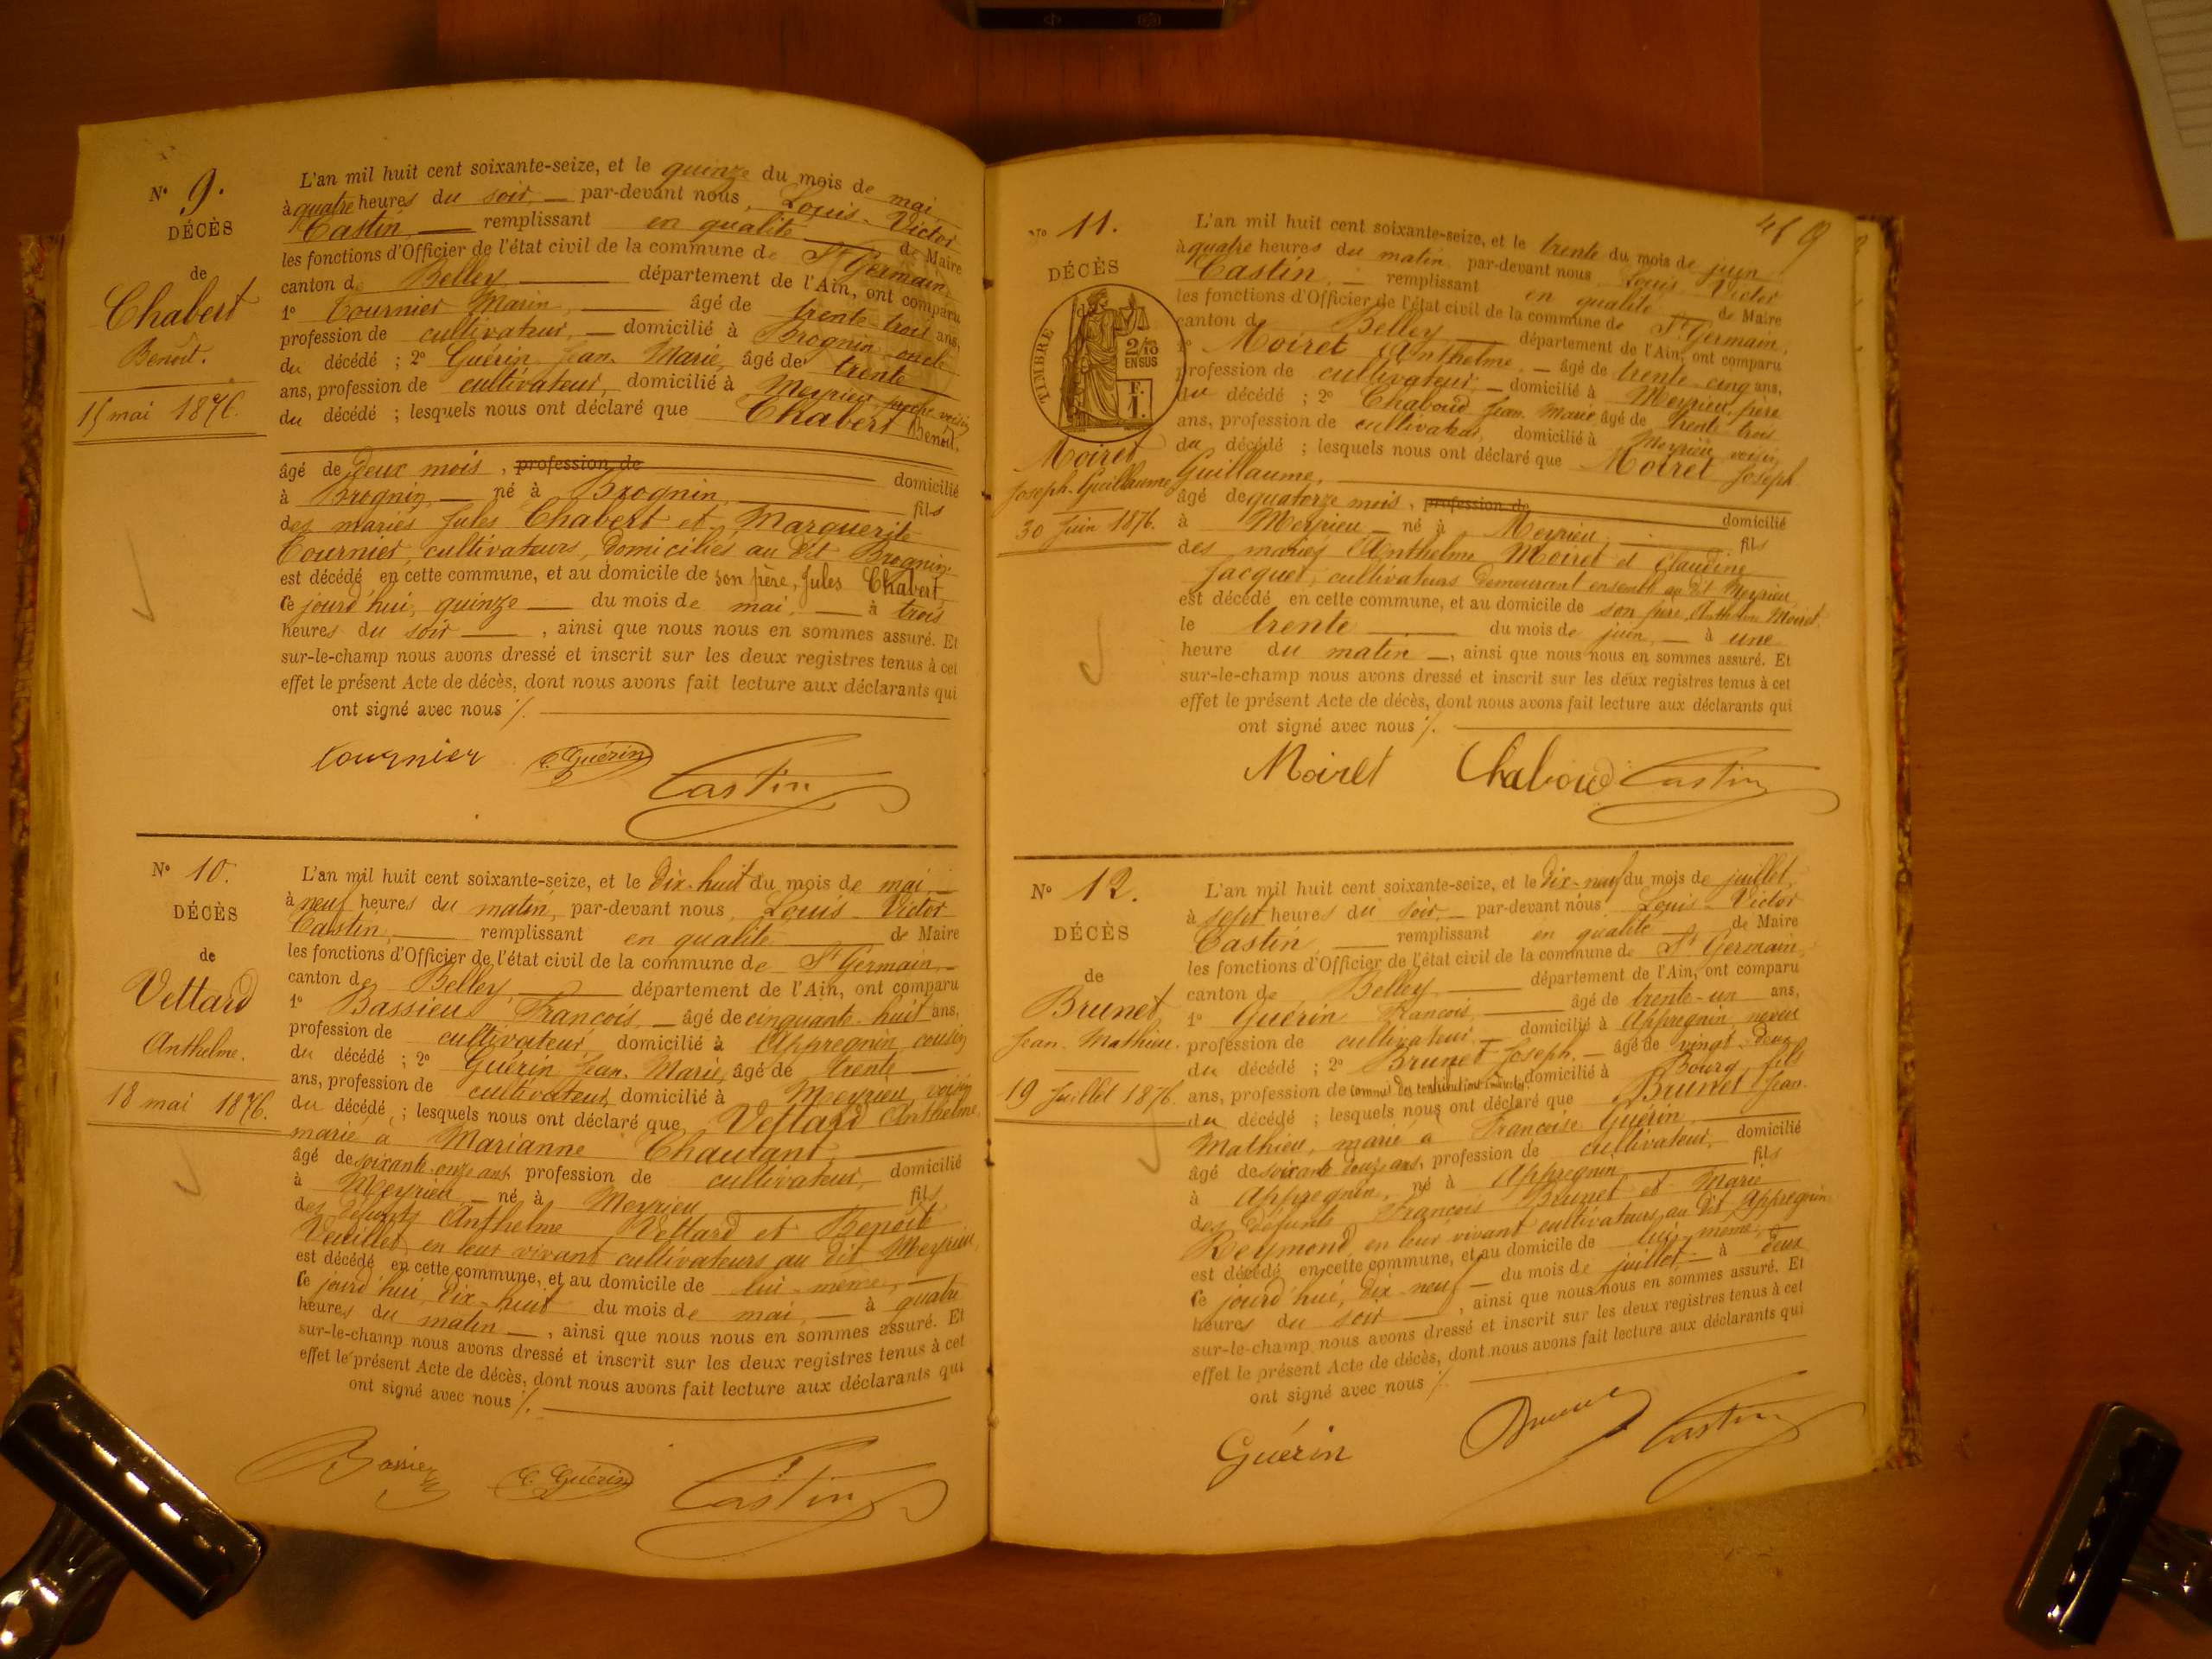 N° 9.
DÉCÈS
de
Chabert
Benoit.
15 mai 1876.
L'an mil huit cent soixante-seize, et le quinze du mois de mai,
à quatre heures du soir, par-devant nous, Louis-Victor
Castin, remplissant en qualité de Maire
les fonctions d'Officier de l'état civil de la commune de St Germain,
canton de Belley, département de l'Ain, ont comparu
1° Cournier Marin, âgé de trente-trois ans,
profession de cultivateur, domicilié à Brognin, oncle
du décédé ; 2° Guérin Jean-Marie, âgé de trente
ans, profession de cultivateur, domicilié à Meyrieu, proche voisin
du décédé ; lesquels nous ont déclaré que Chabert Benoit,
âgé de deux mois, profession de domicilié
à Brognin né à Brognin, fils
des mariés Jules Chabert et Marguerite
Cournier, cultivateurs, domiciliés au dit Brognin.
est décédé en cette commune, et au domicile de son père, Jules Chabert,
ce jourd'hui, quinze du mois de mai, à trois
heures du soir, ainsi que nous nous en sommes assuré. Et
sur-le-champ nous avons dressé et inscrit sur les deux registres tenus à cet
effet le présent Acte de décès, dont nous avons fait lecture aux déclarants qui
ont signé avec nous ./.
Cournier C. Guérin Castin
N° 10.
DÉCÈS
de
Vettard
Anthelme.
18 mai 1876.
L'an mil huit cent soixante-seize, et le dix-huit du mois de mai,
à neuf heures du matin, par-devant nous, Louis-Victor
Castin, remplissant en qualité de Maire
les fonctions d'Officier de l'état civil de la commune de St Germain,
canton de Belley, département de l'Ain, ont comparu
1° Bassieu François, âgé de cinquante-huit ans,
profession de cultivateur, domicilié à Appregnin, cousin
du décédé ; 2° Guérin Jean-Marie, âgé de trente
ans, profession de cultivateur, domicilié à Meyrieu, voisin
du décédé ; lesquels nous ont déclaré que Vettard Anthelme,
marié à Marianne Chautant,
âgé de soixante-onze ans, profession de cultivateur, domicilié
à Meyrieu, né à Meyrieu fils
des défunts Anthelme Vettard et Benoîte
Veuillet, en leur vivant cultivateurs au dit Meyrieu,
est décédé en cette commune, et au domicile de lui-même,
ce jourd'hui, dix-huit du mois de mai, à quatre
heures du matin, ainsi que nous nous en sommes assuré. Et
sur-le-champ nous avons dressé et inscrit sur les deux registres tenus à cet
effet le présent Acte de décès, dont nous avons fait lecture aux déclarants qui
ont signé avec nous ./.
Bassieu C. Guérin Castin
N° 11.
DÉCÈS
TIMBRE
2/10
EN SUS
F.
1.
Moiret
Joseph-Guillaume
30 juin 1876.
L'an mil huit cent soixante-seize, et le trente du mois de juin
à quatre heures du matin par-devant nous Louis-Victor
Castin, remplissant en qualité de Maire
les fonctions d'Officier de l'état civil de la commune de St Germain,
canton de Belley département de l'Ain, ont comparu
Moiret Anthelme, âgé de trente-cinq ans,
profession de cultivateur, domicilié à Meyrieu, père
du décédé ; 2° Chaboud Jean-Marie âgé de trente-trois
ans, profession de cultivateur, domicilié à Meyrieu, voisin
du décédé ; lesquels nous ont déclaré que Moiret Joseph-
Guillaume,
âgé de quatorze mois, profession de domicilié
à Meyrieu né à Meyrieu, fils
des mariés Anthelme Moiret et Claudine
Jacquet, cultivateurs demeurant ensemble au dit Meyrieu
est décédé en cette commune, et au domicile de son père, Anthelme Moiret,
le trente du mois de juin, à une
heure du matin, ainsi que nous nous en sommes assuré. Et
sur-le-champ nous avons dressé et inscrit sur les deux registres tenus à cet
effet le présent Acte de décès, dont nous avons fait lecture aux déclarants qui
ont signé avec nous ./.
Moiret Chaboud Castin
N° 12.
DÉCÈS
de
Brunet,
Jean-Mathieu.
19 Juillet 1876.
L'an mil huit cent soixante-seize, et le dix-neuf du mois de juillet,
à sept heures du soir, par-devant nous Louis-Victor
Castin, remplissant en qualité de Maire
les fonctions d'Officier de l'état civil de la commune de St Germain,
canton de Belley département de l'Ain, ont comparu
1° Guérin François, âgé de trente-un ans,
profession de cultivateur, domicilié à Appregnin, neveu
du décédé ; 2° Brunet Joseph, âgé de vingt-deux
ans, profession de commis des contributions indirectes, domicilié à Bourg, fils
du décédé ; lesquels nous ont déclaré que Brunet Jean-
Mathieu, marié à Françoise Guérin
âgé de soixante-douze ans, profession de cultivateur, domicilié
à Appregnin, né à Appregnin, fils
des défunts François Brunet et Marie
Reymond, en leur vivant cultivateurs au dit Appregnin
est décédé en cette commune, et au domicile de lui-même,
ce jourd'hui, dix-neuf du mois de juillet, à deux
heures du soir, ainsi que nous nous en sommes assuré. Et
sur-le-champ nous avons dressé et inscrit sur les deux registres tenus à cet
effet le présent Acte de décès, dont nous avons fait lecture aux déclarants qui
ont signé avec nous ./.
Guérin Brunet Castin